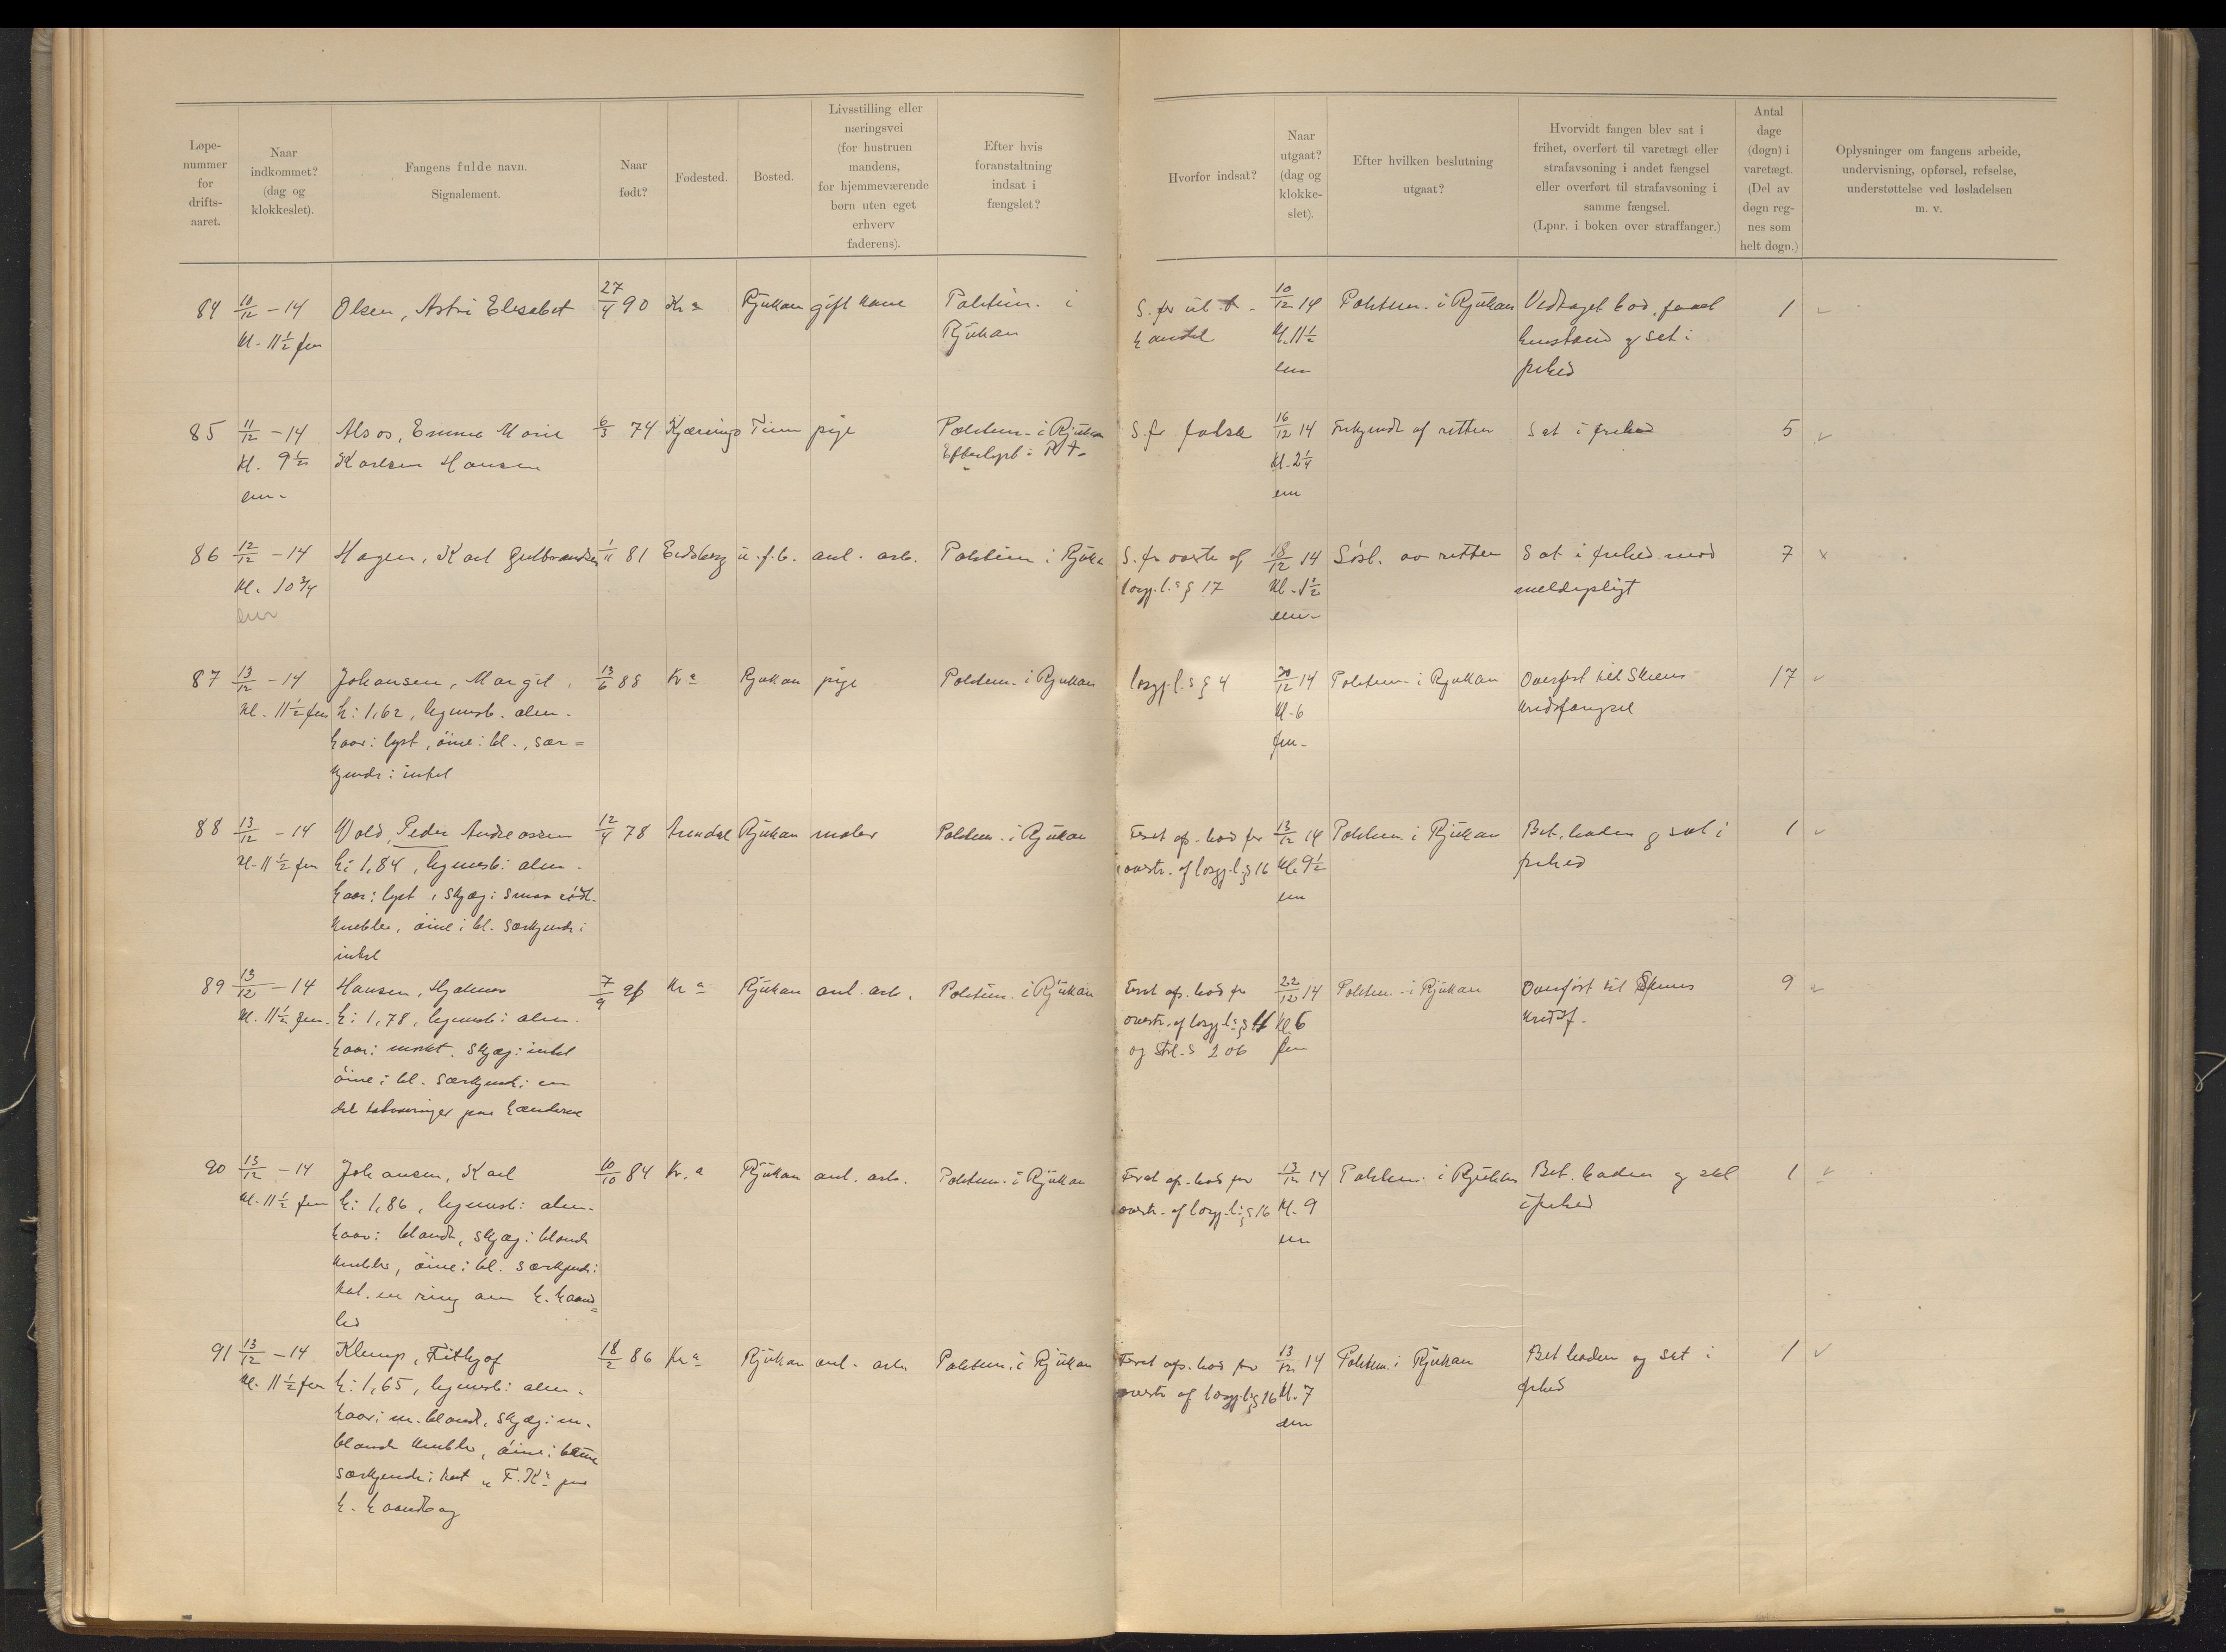 Løpe-
nummer
for
drifts-
aaret.
Naar
indkommet?
(dag og
klokkeslet).
Fangens fulde navn.
Signalement.
Naar
født?
Fødested.
Bosted.
Livsstilling eller
næringsvei
(for hustruen
mandens,
for hjemmeværende
børn uten eget
erhverv
faderens).
Efter hvis
foranstaltning
indsat i
fængslet?
Hvorfor indsat?
Naar
utgaat?
(dag og
klokke-
slet).
Efter hvilken beslutning
utgaat?
Hvorvidt fangen blev sat i
frihet, overført til varetægt eller
strafavsoning i andet fængsel
eller overført til strafavsoning i
samme fængsel.
(Lpnr. i boken over straffanger.)
Antal
dage
(døgn) i
varetægt.
(Del av
døgn reg-
nes som
helt døgn.)
Oplysninger om fangens arbeide,
undervisning, opførsel, refselse,
understøttelse ved løsladelsen
m. v.
84 10/12 - 14 Olsen, Astri Elisabet 27/4 90 Kr a Rjukan gift kone Politim. i S. for ul. 10/12 14 Politim. i Rjukan Vedtaget bod, faaet 1
kl. 11 1/2 fm Rjukan handel kl. 11 1/2 henstand og sat i
em frihed
85 11/12 - 14 Alsos, Emma Marie 6/3 74 Kjærringø Tinn pige Politim. i Rjukan S. for falsk 16/12 14 Frikjendt af retten Sat i frihed 5
kl. 9 1/2 Karlsen Hansen Efterlyst i P.t. kl. 2 1/4
em. em
86 12/12 - 14 Hagen, Karl Gulbrandsen 1/11 81 Eidsberg u.f.b. anl. arb. Politim i Rjuka S. for overtr. af 18/12 14 Løsl. av retten Sat i frihed mod 7
kl. 10 3/4 løsgj.l.s § 17 kl. 1 1/2 meldepligt
em em.
87 13/12 - 14 Johansen, Margit 13/6 88 Kr a Rjukan pige Politim. i Rjukan løsgj.l.s § 4 30/12 14 Politim. i Rjukan Overført til Skiens 17
kl. 11 1/2 fm h: 1,62, legemsb. alm. kl. 6 kredsfængsel
haar: lyst, øine: bl., sær= fm.
kjende: intet
88 13/12 - 14 Wold, Peder Andreassen 12/4 78 Arendal Rjukan maler Politim. i Rjukan Foret ap. bod for 13/12 14 Politim. i Rjukan Bet. boden og sat i 1
kl. 11 1/2 fm h: 1,84, legemsb: alm. overtr. af løsgj.l. § 16 kl. 9 1/2 frihed
haar: lyst, skjæg: smaa rødl. em
knebler, øine: bl. særkjende:
intet
89 13/12 - 14 Hansen, Hjalmar 7/9 Kr a Rjukan anl. arb. Politim. i Rjukan Foret ap. bod for 22/12 14 Politim. i Rjukan Overført til Skiens 9
kl. 11 1/2 fm. h: 1,78, legemsb: alm. overtr. af løsgj.l.s § kl. 6 kredsf.
haar: mørkt, skjæg: intet og strl.s 206 fm
øine: bl. særkjend: en
del tatoveringer paa hænderne
90 13/12 - 14 Johansen, Karl 10/10 84 Kr. a Rjukan anl. arb. Politim. i Rjukan Foret ap. bod for 13/12 14 Politim. i Rjukan Bet. boden og sat 1
kl. 11 1/2 fm h: 1,86, legemsb: alm. overtr. af løsgj.l: § 16 kl. 9 i frihed
haar: blondt, skjæg: blonde em
knebler, øine: bl. særkjende:
tat. en ring om h. haand=
led
91 13/12 - 14 Klemp, Fithjof 18/2 86 Kr a Rjukan anl. arb Politim. i Rjukan Foret ap. bod for 13/12 14 Politim. i Rjukan Bet boden og sat i 1
kl. 11 1/2 fm h: 1,65, legemsb: alm. overtr. af løsgj.l. § 16 kl. 7 frihed
haar: m. blond, skjæg: m. em
blonde knebler, øine: blaa
særkjende: tat „F.K" paa
h. haandbag